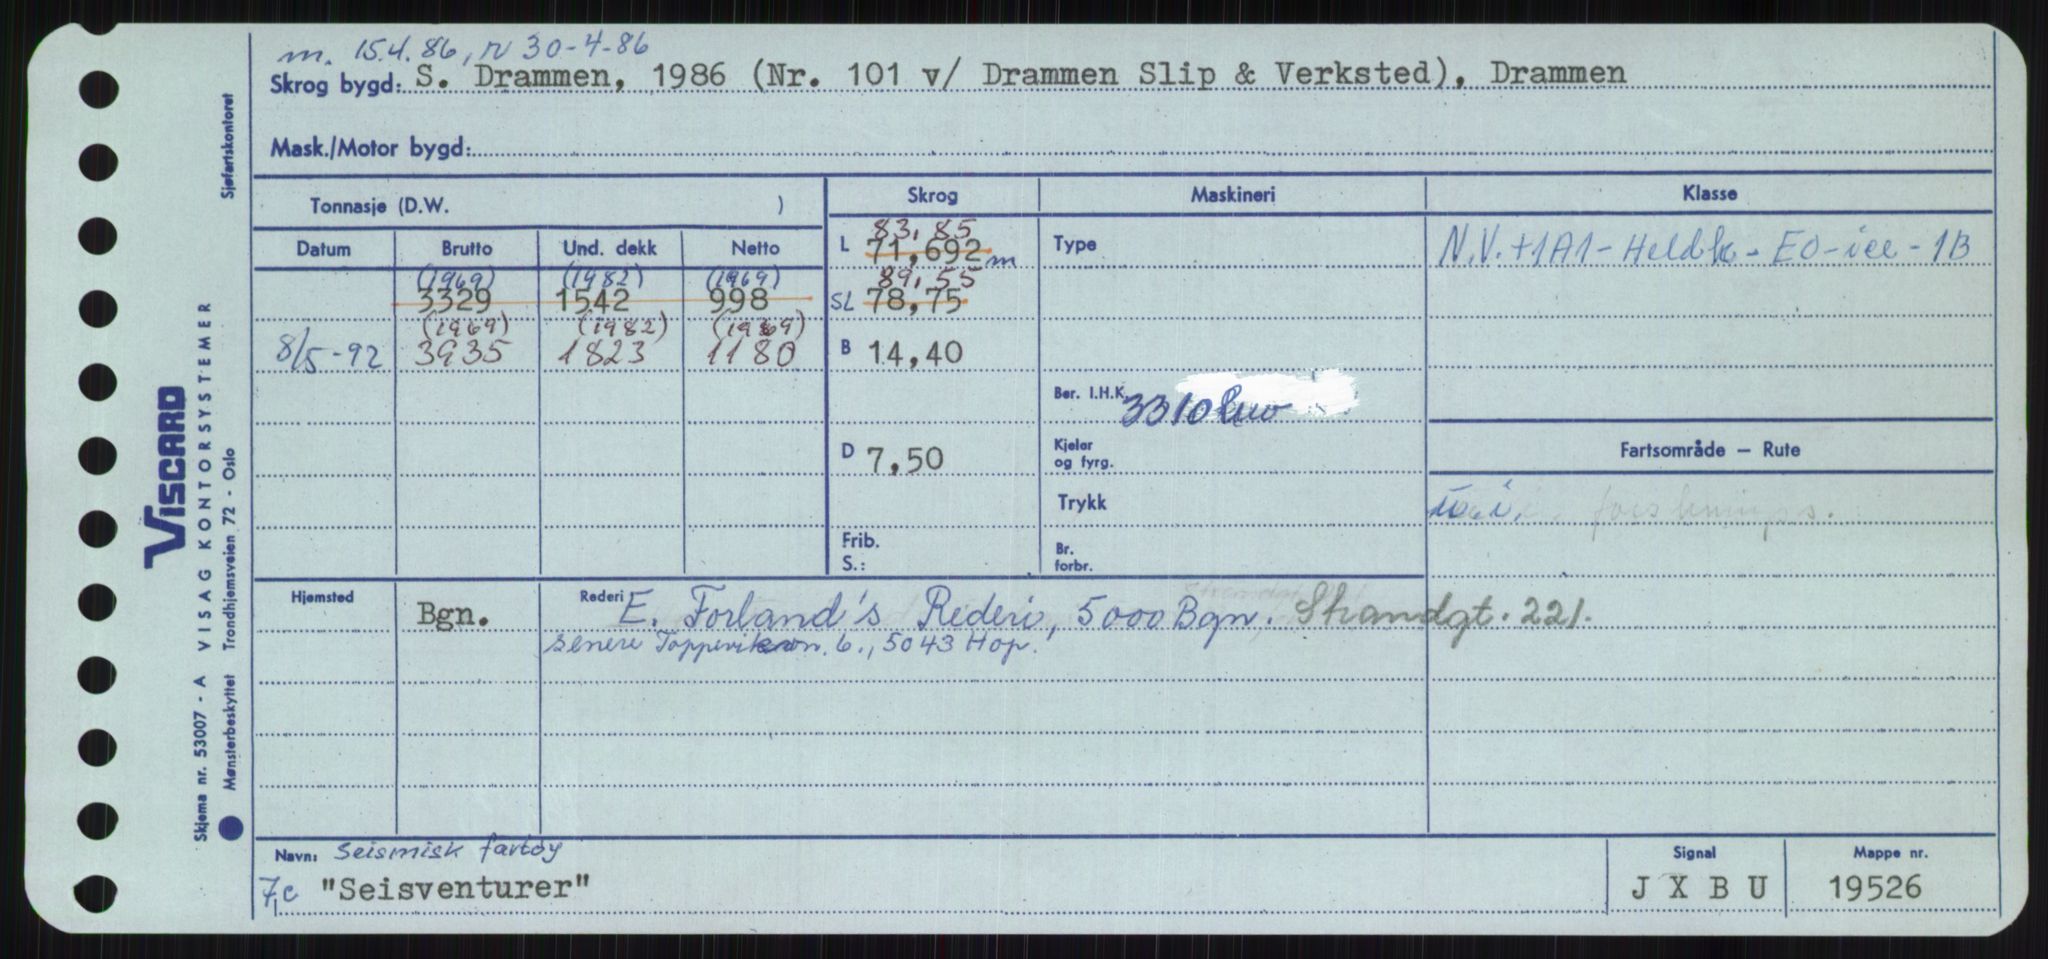 m. 15.4.86, r 30-4-86
Skrog bygd: S. Drammen, 1986 (Nr. 101 v/ Drammen Slip & Verksted), Drammen
Mask./Motor bygd:
Tonnasje (D.W. )
Skrog
Maskineri
Klasse
Datum Brutto Und. dekk Netto
83,85
L 71,692 m
Type
N.V. +1A1-Heldk-EO-ice-1B
(1969) (1982) (1969)
3329 1542 998
89,55
SL 78,75
(1969) (1982) (1969)
8/5-92 3935 1823 1180
B 14,40
Ber. I.H.K. 3310 kw
D 7,50
Kjeler
og fyrg.
Fartsområde — Rute
Trykk
forsknings.
Frib.
S.:
Br.
forbr.
Hjemsted Bgn.
Rederi E. Forland's Rederi, 5000 Bgn. Strandgt. 221.
senere 6., 5043 Hop.
Navn: Seismisk fartøy
7c "Seisventurer"
Signal
J X B U
Mappe nr.
19526
Sjøfartskontoret
VISCARD
Skjema nr. 53007 - A VISAG KONTORSYSTEMER
Mønsterbeskyttet Trondhjemsveien 72 - Oslo